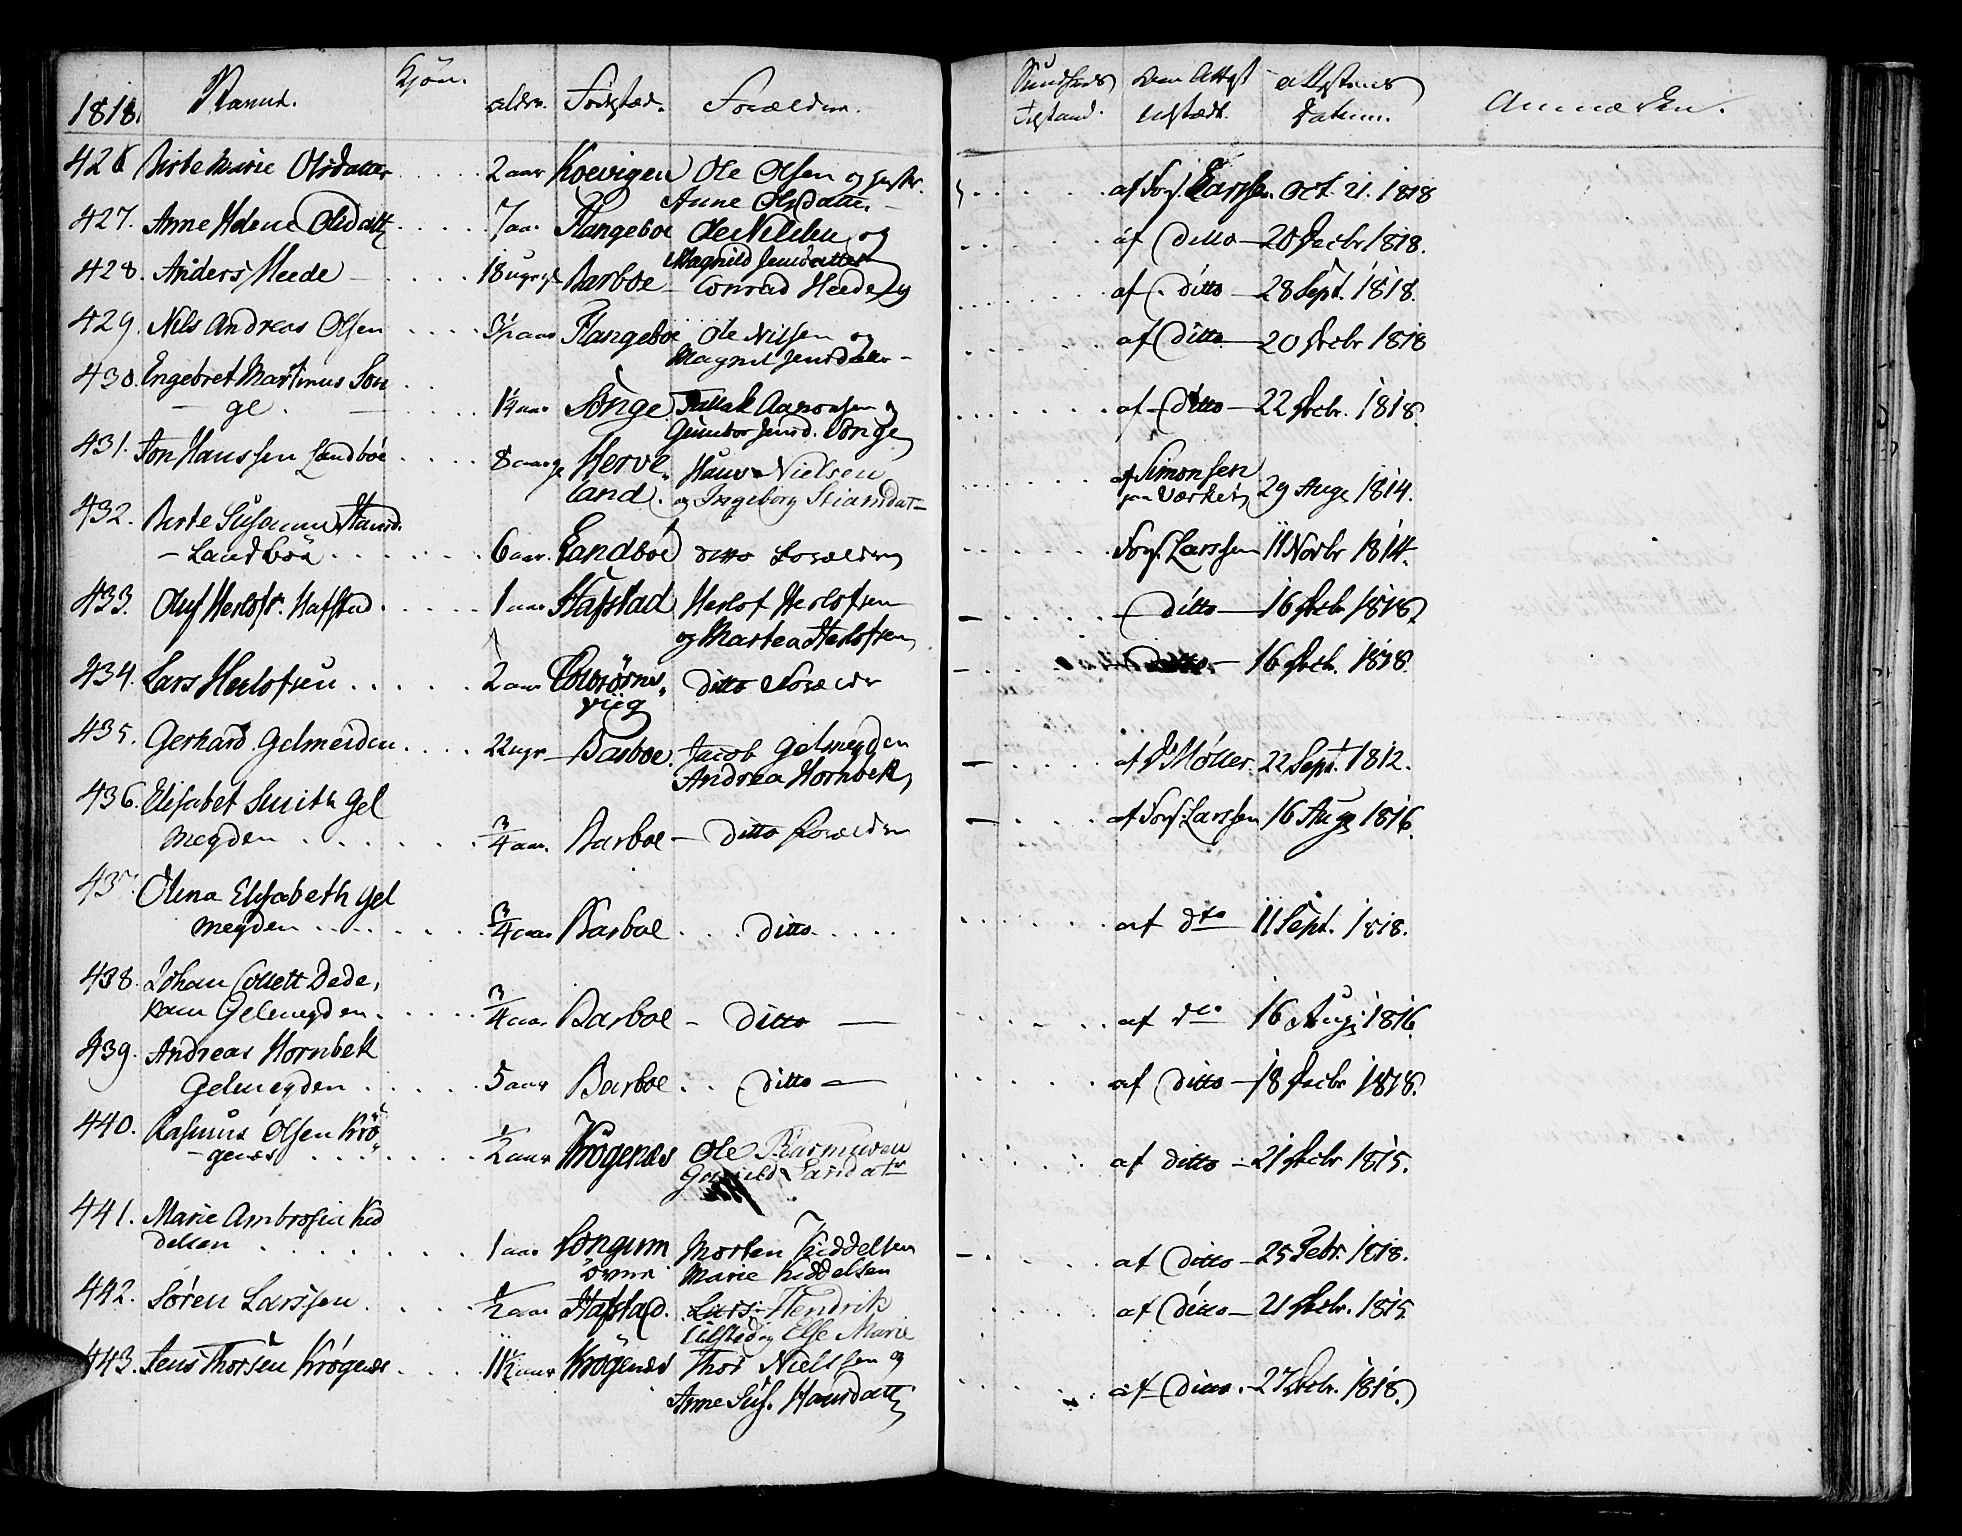 1818. Navne. Kjön. alder. Fødested. Forældre. Sundheds Tilstand. den Attest udstædt. attestens Datum. Anmærkn.
426 Birte Marie Olsdatter 2 aar Koevigen Ole Olsen og
Anne Olsdatter af Forf. Larssen. Oct. 21. 1818
427. Anne Helene Olsdatt 7 aar Flangeboe Ole Nielsen og
Magnild Jensdatter af ditto 20 Decbr 1818.
428. Anders Heede 18 uger Barboe Conrad Heede og af ditto 28 Sept. 1818.
429. Nils Andreas Olsen 3½ aar Flangeboe Ole Nilsen og
Magnil Jensdatter af ditto 20 Decbr 1818
430. Engebret Martinus Son
ge. 1¼ aar Songe Tallak Aaronsen og af ditto 22 Decbr. 1818.
Gunbor Jensd. Songe
431. Jon Hanssen Landböe 8 aar Herve
land. Hans Nielsen
og Ingeborg Stiansdat af Simonsen
paa Værket 29 Aug 1814.
432. Birte Susanne Hansd.
Landböe 6 aar. Landböe ditto Forældre Forf. Larssen 11 Novbr 1814.
433. Oluf Herlofs. Hafstad 1 aar Hafstad Herlof Herlofsen
og Martea Herlofsen ditto 16 Decbr 1818
434. Lars Herlofsen 2 aar
viig ditto Forældre ditto 16 Decb. 1818.
435. Gerhard Gelmeiden 22 ugr Barboe Jacob Gelmeyden
Andrea Hornbek af D Møller. 22 Sept. 1812.
436. Elisabet Smith Gel
meyden ¾ aar. Barboe ditto Forældre af Forf. Larssen 16 Aug 1816.
437. Olena Elisabeth Gel
meyden ¾ aar Barboe ditto af dto 11 Sept. 1818.
438. Johan Collett Dede,
kam Gelmeyden. ¾ aar. Barboe ditto af dto 16 Aug. 1816
439. Andreas Hornbek
Gelmeyden 5 aar Barboe ditto af ditto 18 Decbr 1818.
440. Rasmus Olsen Krö
genes ½ aar Krögenæs Ole Rasmusen
Larsdatr af ditto 21 Decbr 1815.
441. Marie Ambrosia Kid
delsen 1 aar Longum
övre Morten Kiddelsen
Marie Kiddelsen af ditto 25 Febr. 1818.
442. Sören Larssen ½ aar Hafstad. Lars Hendrik
og Else Marie af ditto 21 Decbr. 1815
443. Jens Thorsen Krögenæs 1½ aar Krögenæs Thor Nielssen og
Anne Sus. Hansdatt af ditto. 27 Decbr. 1818.